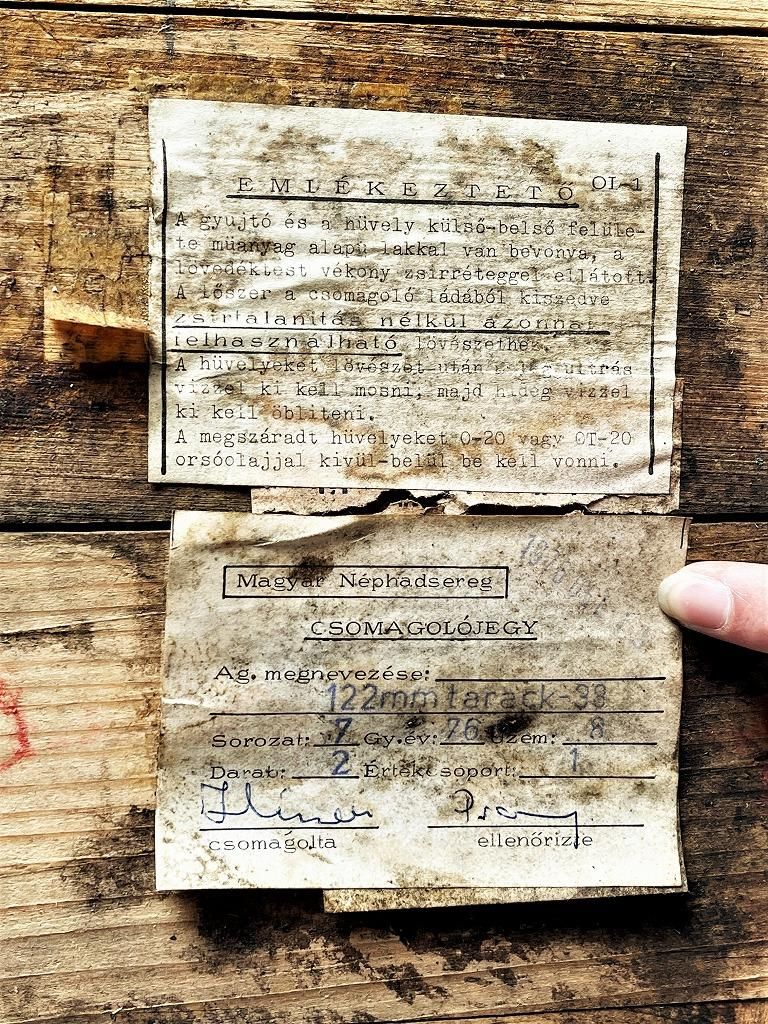 EMLÉKEZTETŐ OI-1
A gyujtó és a hüvely külső-belső felüle-
te müanyag alapu lakkal van bevonva, a
lövedéktest vékony zsirréteggel ellátott.
A lőszer a csomagoló ládából kiszedve
zsirtalanitás nélkül azonnal
felhasználható lövészethez.
A hüvelyeket lövészet után
vizzel ki kell mosni, majd hideg vizzel
ki kell öbliteni.
A megszáradt hüvelyeket O-20 vagy OT-20
orsóolajjal kivül-belül be kell vonni.
Magyar Néphadsereg
CSOMAGOLÓJEGY
Ag. megnevezése:
122mm tarack-38
Sorozat: 7 Gy.év: 76 Üzem: 8
Darab: 2 Értékcsoport: 1
csomagolta ellenőrizte